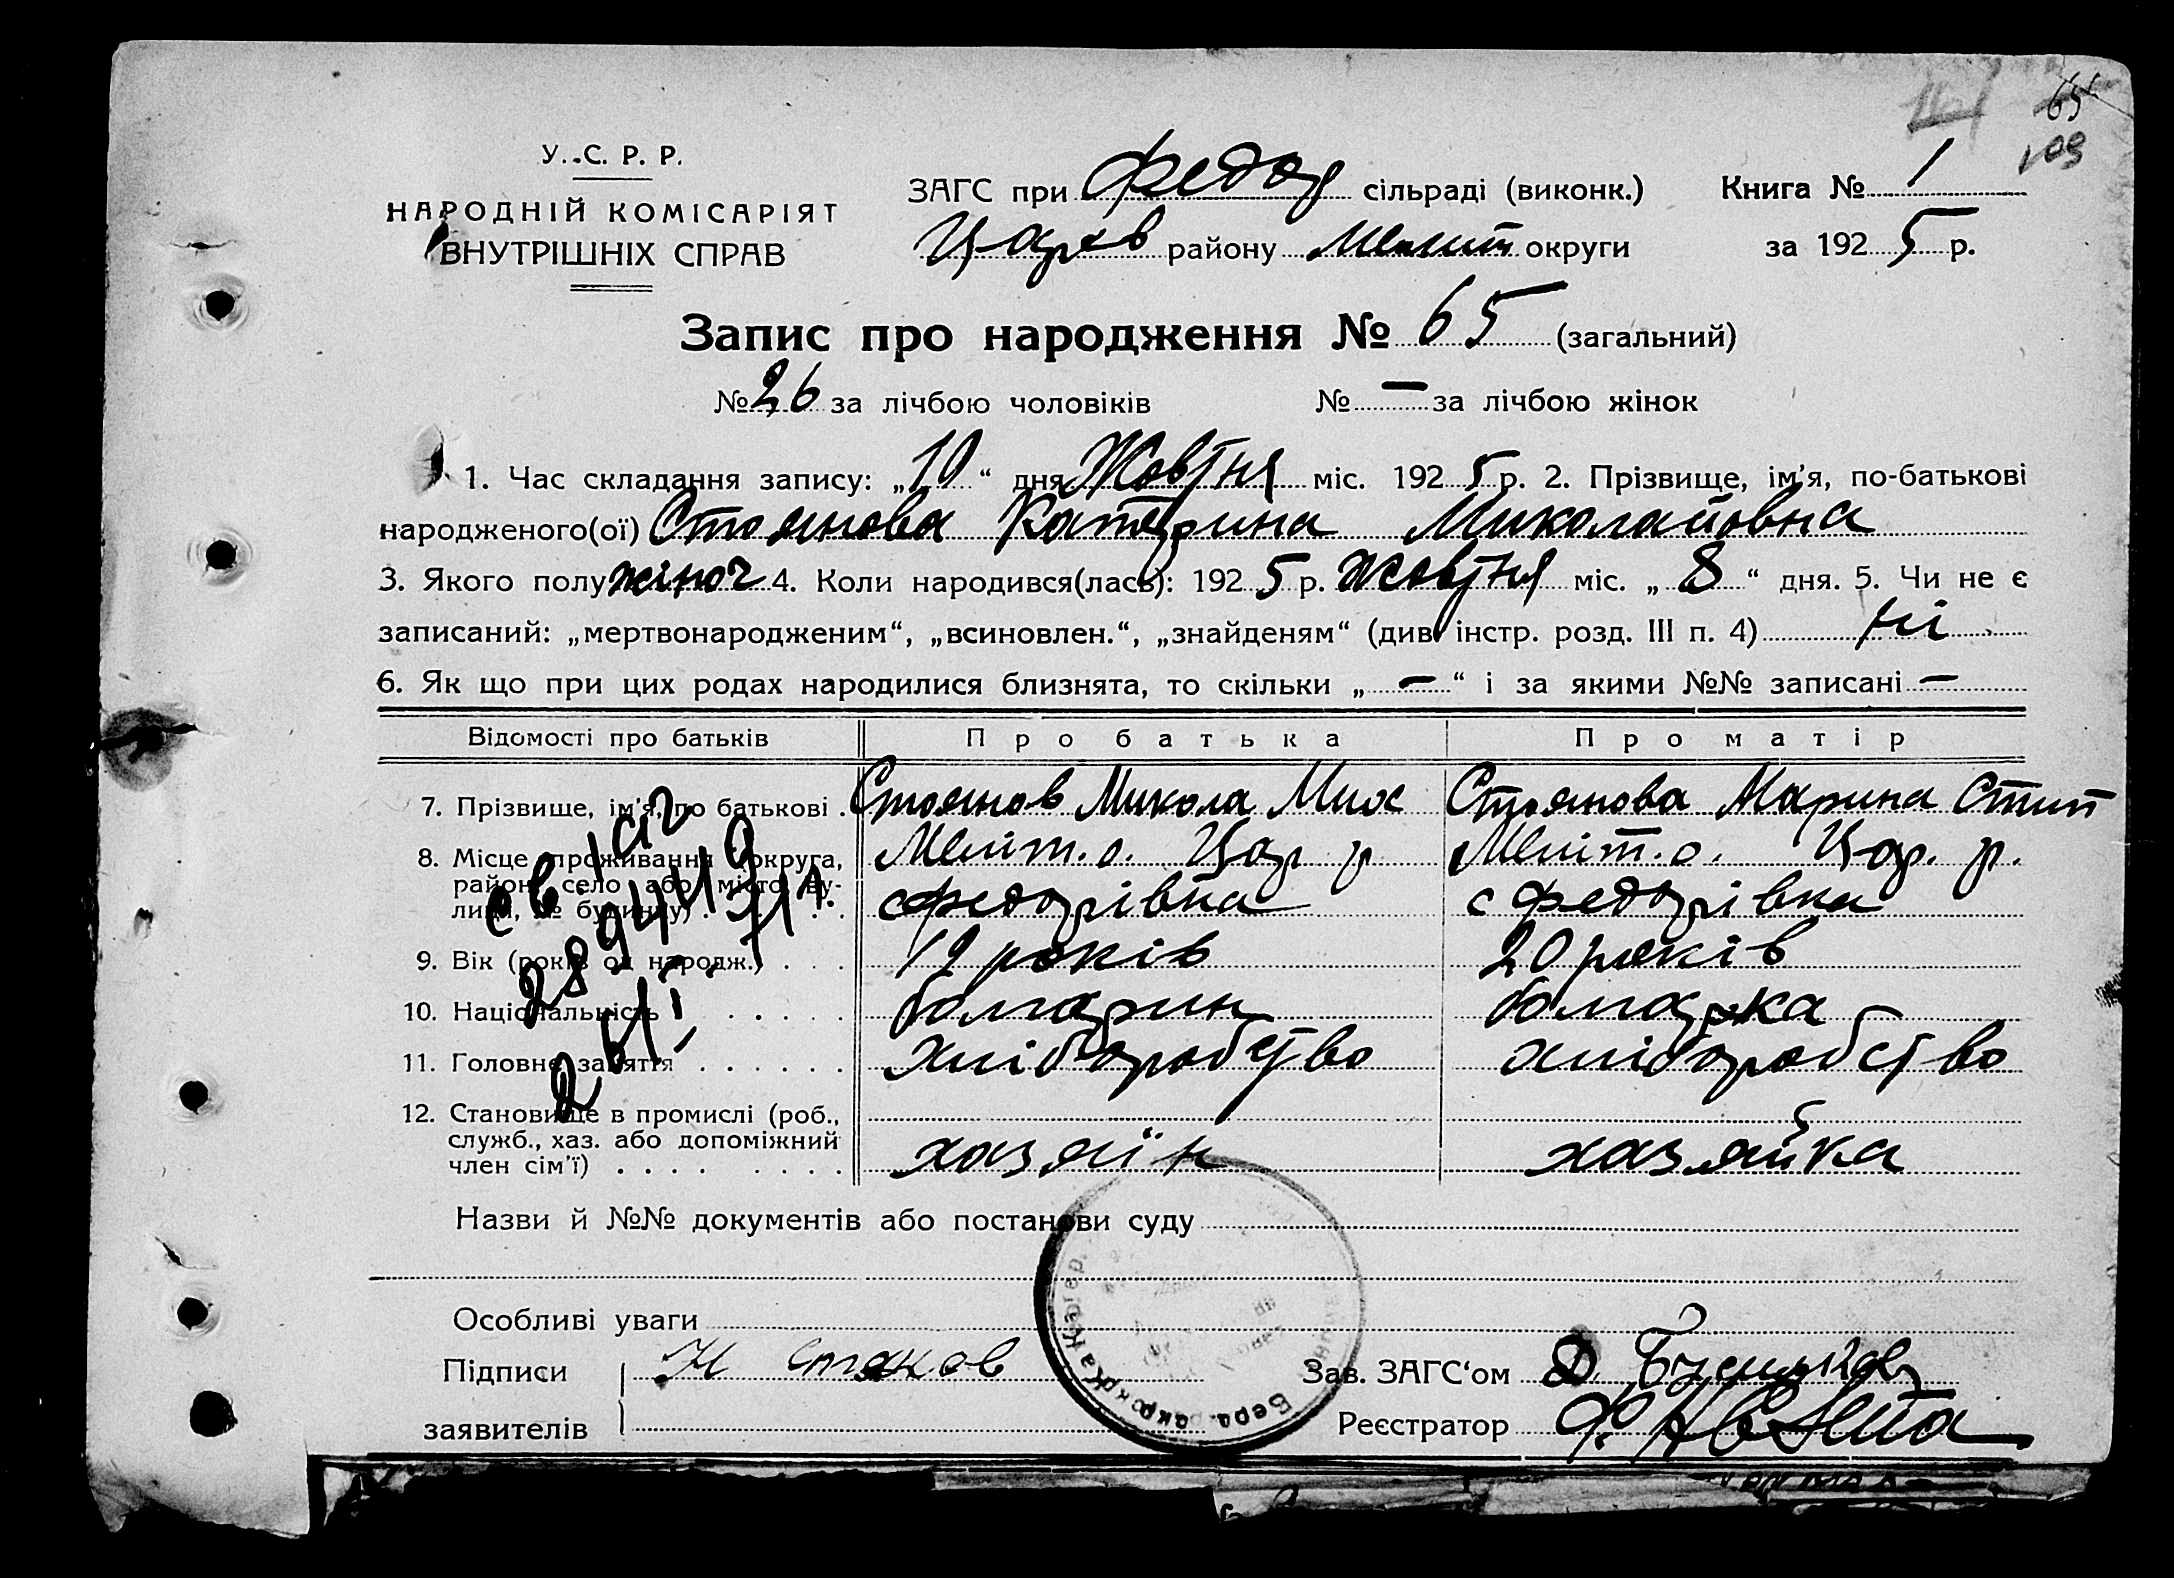 65
109
У. С. Р. Р.
НАРОДНІЙ КОМІСАРІЯТ
ВНУТРІШНІХ СПРАВ
ЗАГС при Федор сільраді (виконк.) Книга № 1
Царев району Мелит округи за 1925 р.
Запис про народження № 65 (загальний)
№ 26 за лічбою чоловіків № — за лічбою жінок
1. Час складання запису: „10“ дня Жовтня міс. 1925 р. 2. Прізвище, ім'я, по-батькові
народженого(ої) Стоянова Катерина Миколайовна
3. Якого полу жіноч 4. Коли народився(лась): 1925 р. Жовтня міс. „8“ дня. 5. Чи не є
записаний: „мертвонародженим“, „всиновлен.“, „знайденям“ (див. інстр. розд. III п. 4) ні
6. Як що при цих родах народилися близнята, то скільки „—“ і за якими №№ записані —
Відомості про батьків Про батька Про матір
7. Прізвище, ім'я, по батькові . Стоянов Микола Мих Стоянова Марина Стип
8. Місце проживання (округа, район, село або місто, вулиця, № будинку) . . . Меліт. о. Цар р Меліт. о. Цар. р.
с Федорівка с Федорівка
9. Вік (років од народж.) . . . 19 років 20 років
10. Національність . . . . . . болгарин болгарка
11. Головне заняття . . . . . . хліборобство хліборобство
12. Становище в промислі (роб., служб., хаз. або допоміжний член сім'ї) . . . . . . . . хазяїн хазяйка
Назви й №№ документів або постанови суду
Особливі уваги
Підписи Н Стоянов Зав. ЗАГС'ом Д.
заявителів Реєстратор Ф.